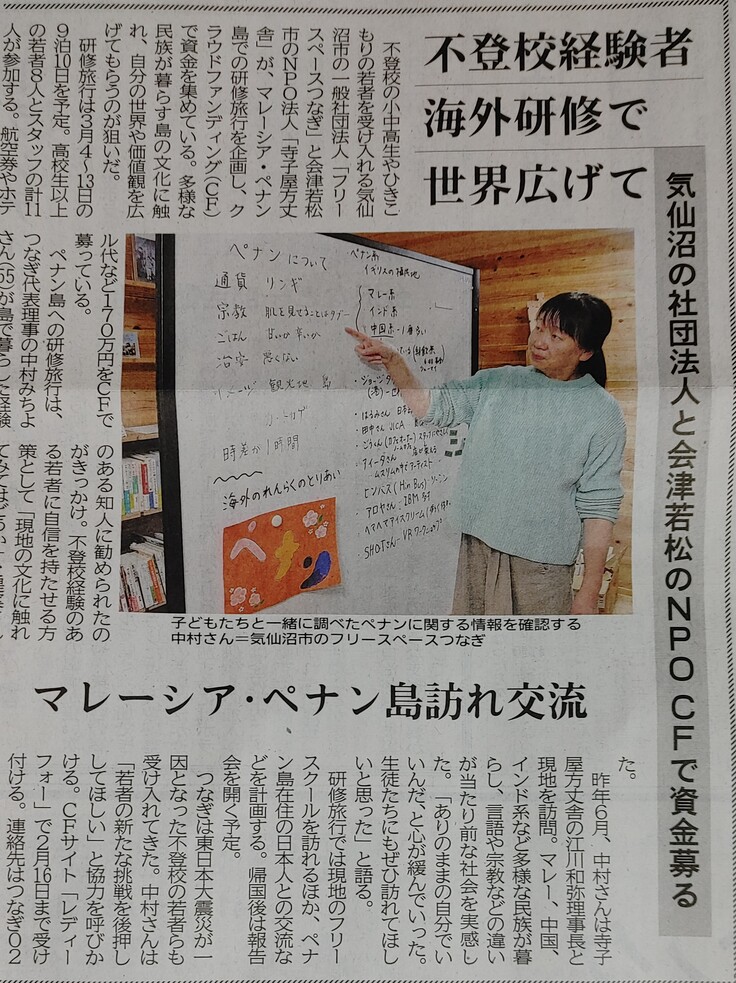 不登校経験者
海外研修で
世界広げて
気仙沼の社団法人と会津若松のNPO CFで資金募る
不登校の小中高生やひきこ
もりの若者を受け入れる気仙
沼市の一般社団法人「フリー
スペースつなぎ」と会津若松
市のNPO法人「寺子屋方丈
舎」が、マレーシア・ペナン
島での研修旅行を企画し、ク
ラウドファンディング(CF)
で資金を集めている。多様な
民族が暮らす島の文化に触
れ、自分の世界や価値観を広
げてもらうのが狙いだ。
研修旅行は3月4~13日の
9泊10日を予定。高校生以上
の若者8人とスタッフの計11
人が参加する。航空券やホテ
ル代など170万円をCFで
募っている。
ペナン島への研修旅行は、
つなぎ代表理事の中村みちよ
さん(55)が島で暮らした経験
のある知人に勧められたの
がきっかけ。不登校経験のあ
る若者に自信を持たせる方
策として「現地の文化に触れ
てみてはどうか」
ペナンについて
通貨 リンギ
宗教 肌を見せることはタブー
ごはん 甘いか辛いか
治安 悪くない
イメージ 観光地 島
時差が1時間
海外のれんらくのとりあい
ペナン
ペナン島
イギリスの植民地
マレー系
インド系
中国系
・田中さん JICA
・アイータさん
・アロヤさん:IBM
・SHOTさん・VRワークショップ
子どもたちと一緒に調べたペナンに関する情報を確認する
中村さん=気仙沼市のフリースペースつなぎ
マレーシア・ペナン島訪れ交流
た。
昨年6月、中村さんは寺子
屋方丈舎の江川和弥理事長と
現地を訪問。マレー、中国、
インド系など多様な民族が暮
らし、言語や宗教などの違い
が当たり前な社会を実感し
た。「ありのままの自分でい
いんだ、と心が緩んでいった。
生徒たちにもぜひ訪れてほし
いと思った」と語る。
研修旅行では現地のフリー
スクールを訪れるほか、ペナ
ン島在住の日本人との交流な
どを計画する。帰国後は報告
会を開く予定。
つなぎは東日本大震災が一
因となった不登校の若者らも
受け入れてきた。中村さんは
「若者の新たな挑戦を後押し
してほしい」と協力を呼びか
ける。CFサイト「レディー
フォー」で2月16日まで受け
付ける。連絡先はつなぎ02